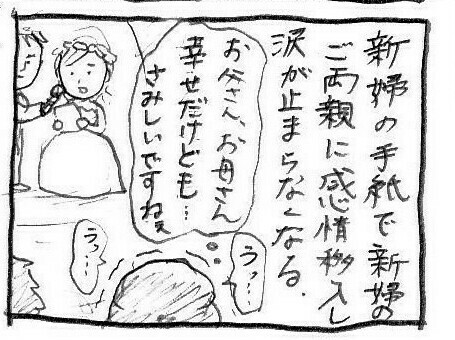 新婦の手紙で新婦の
ご両親に感情移入し
涙が止まらなくなる.
お父さん、お母さん
幸せだけども…
さみしいですねぇ
うっ…
うっ…